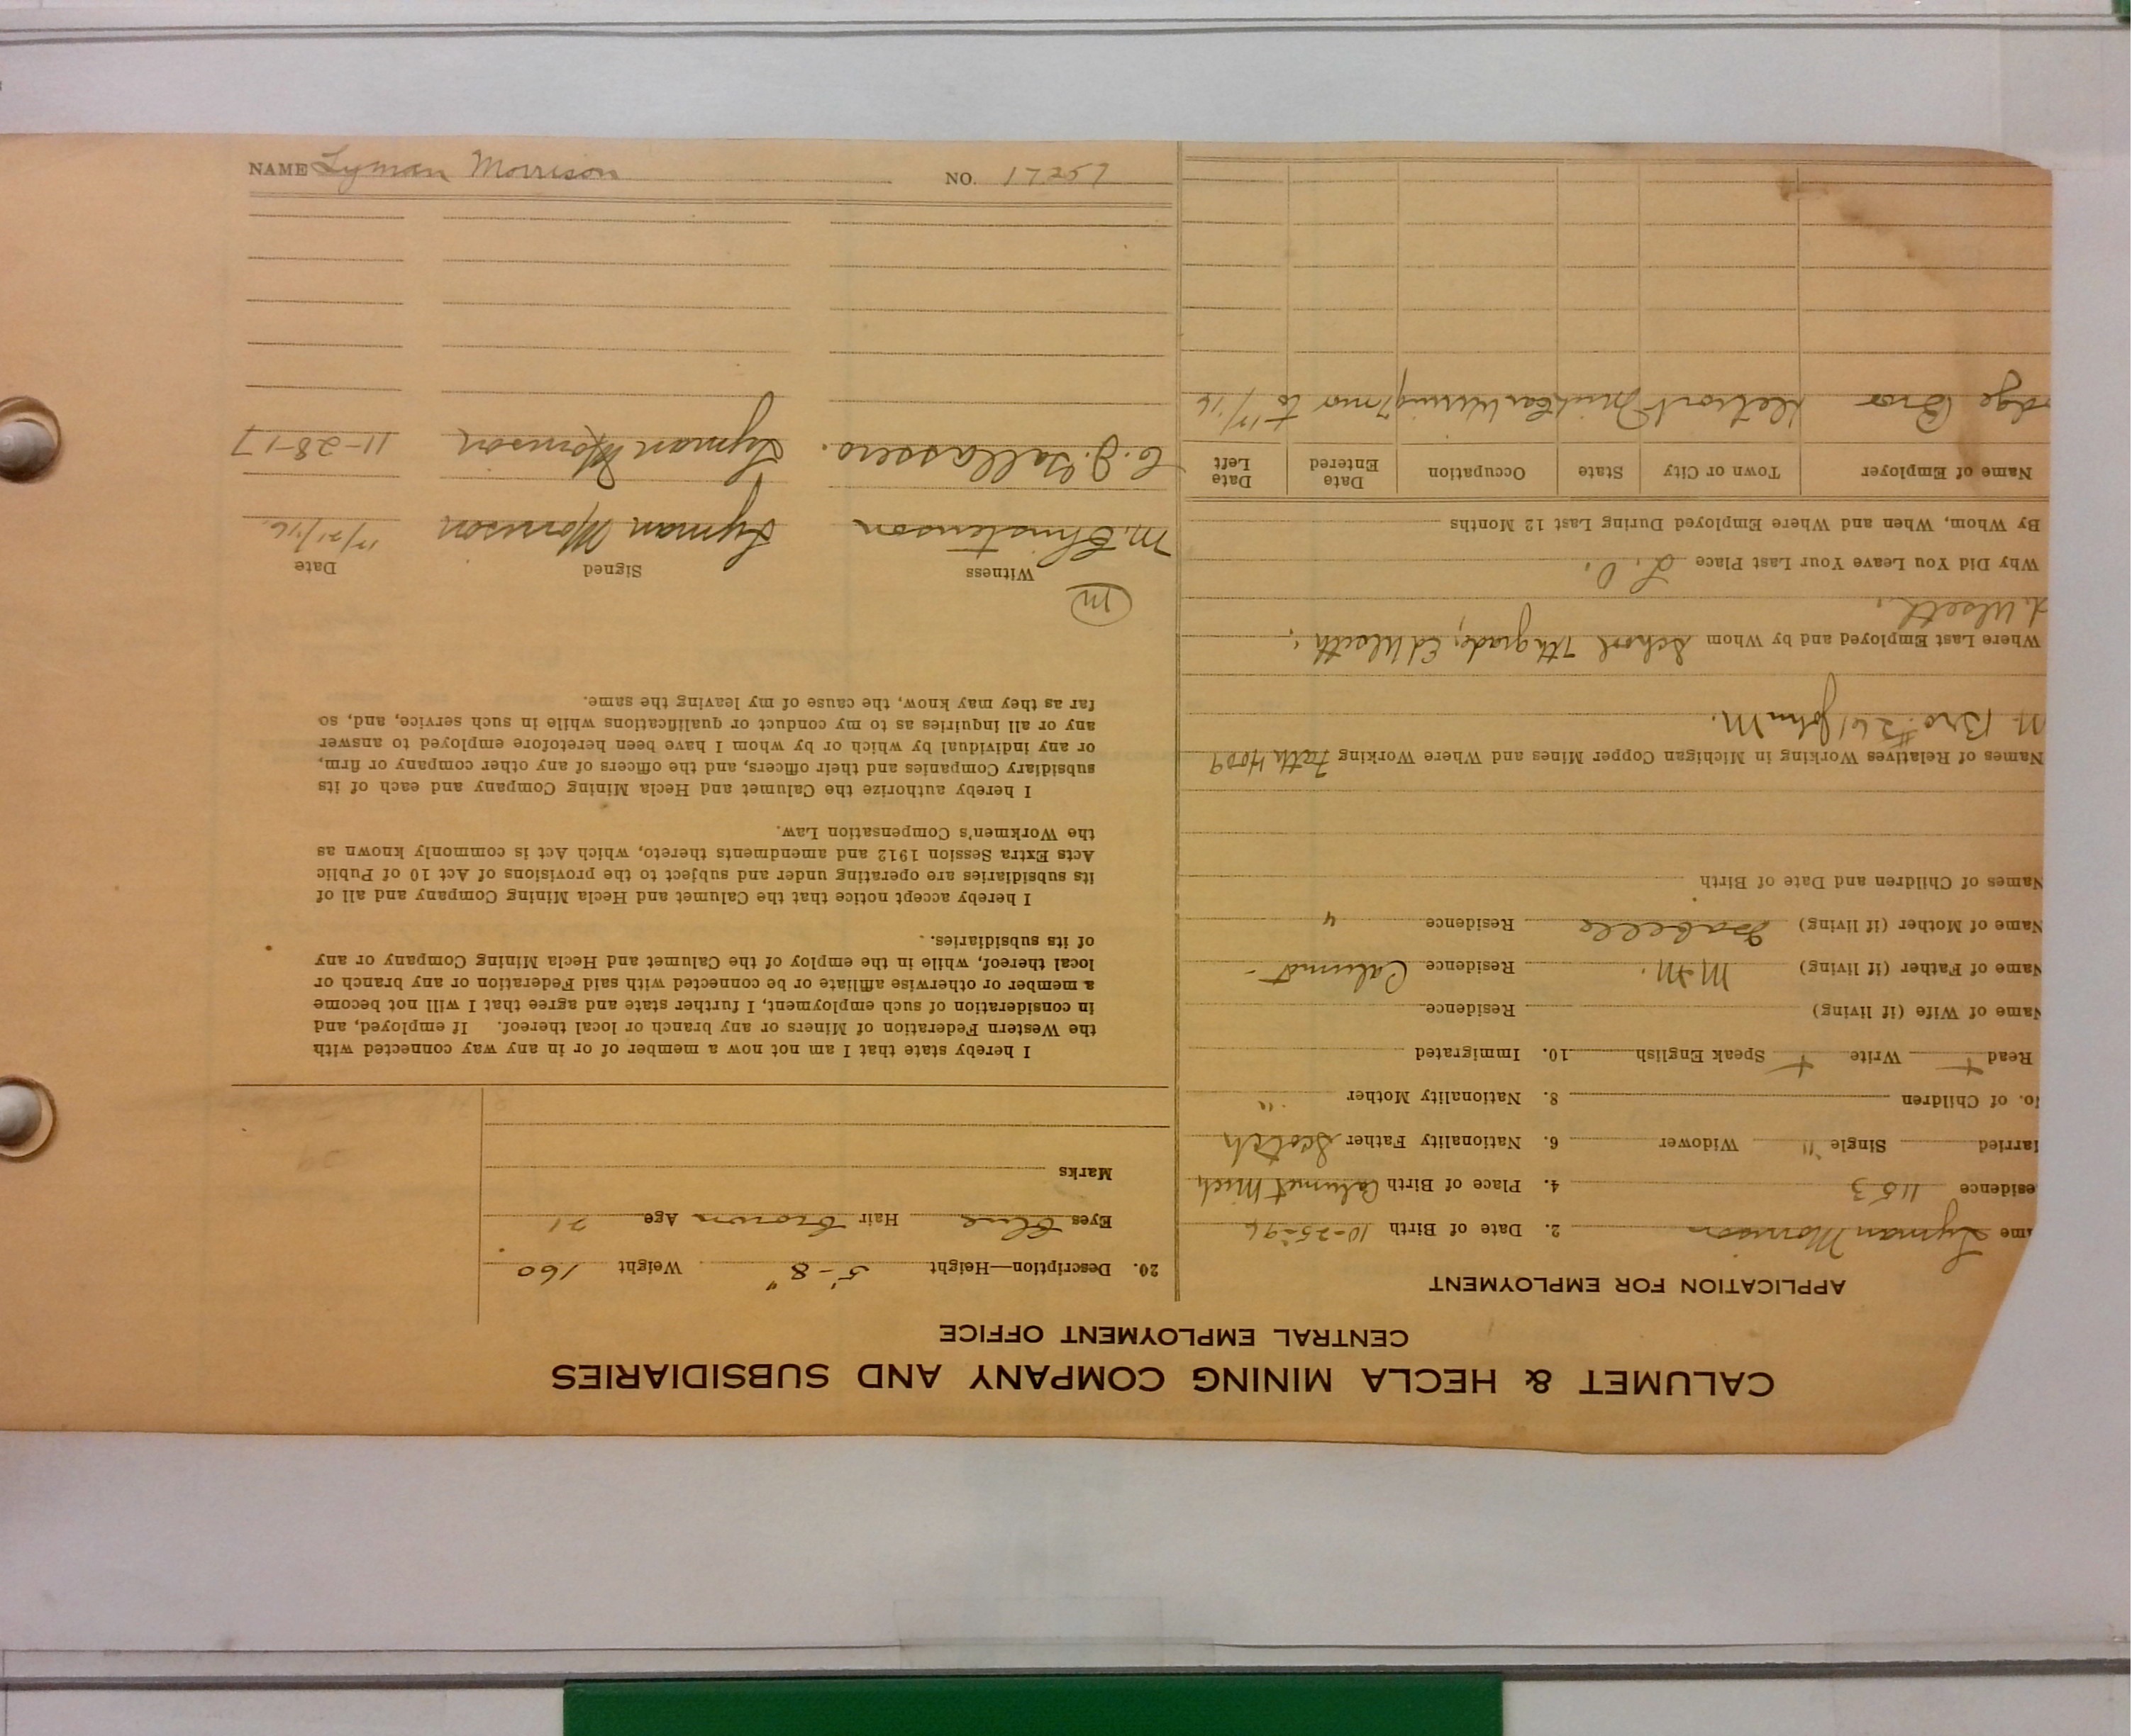 CALUMET & HECLA MINING COMPANY AND SUBSIDIARIES
CENTRAL EMPLOYMENT OFFICE
APPLICATION FOR EMPLOYMENT
ame Lyman Morrison 2. Date of Birth 10-25-96
esidence 1153 4. Place of Birth Calumet Mich
arried Single " Widower 6. Nationality Father Scotch
o. of Children 8. Nationality Mother "
Read + Write + Speak English 10. Immigrated
Name of Wife (if living) Residence
Name of Father (if living) M.M. Residence Calumet
Name of Mother (if living) Isabelle Residence "
Names of Children and Date of Birth
Names of Relatives Working in Michigan Copper Mines and Where Working Fath 4009
Bro. #261 John M.
Where Last Employed and by Whom School 7th grade, Ed Ulseth
Ulseth.
Why Did You Leave Your Last Place L.O.
By Whom, When and Where Employed During Last 12 Months
Name of Employer Town or City State Occupation Date Entered Date Left
dge Bros Detroit Mich Car Wiring 7 mo to
20. Description—Height 5'-8" Weight 160
Eyes Blue Hair Brown Age 21
Marks
I hereby state that I am not now a member of or in any way connected with
the Western Federation of Miners or any branch or local thereof. If employed, and
in consideration of such employment, I further state and agree that I will not become
a member or otherwise affiliate or be connected with said Federation or any branch or
local thereof, while in the employ of the Calumet and Hecla Mining Company or any
of its subsidiaries.
I hereby accept notice that the Calumet and Hecla Mining Company and all of
its subsidiaries are operating under and subject to the provisions of Act 10 of Public
Acts Extra Session 1912 and amendments thereto, which Act is commonly known as
the Workmen's Compensation Law.
I hereby authorize the Calumet and Hecla Mining Company and each of its
subsidiary Companies and their officers, and the officers of any other company or firm,
or any individual by which or by whom I have been heretofore employed to answer
any or all inquiries as to my conduct or qualifications while in such service, and, so
far as they may know, the cause of my leaving the same.
m
Witness Signed Date
M. Christenson Lyman Morrison
C. J. Gallassero. Lyman Morrison 11-28-17
NAME Lyman Morrison NO. 17257